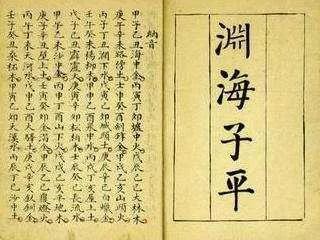 淵海子平
納音
甲子乙丑海中金丙寅丁卯爐中火戊辰己巳大林木
庚午辛未路傍土壬申癸酉劍鋒金甲戌乙亥山頭火
丙子丁丑澗下水戊寅己卯城頭土庚辰辛巳白蠟金
壬午癸未楊柳木甲申乙酉泉中水丙戌丁亥屋上土
戊子己丑霹靂火庚寅辛卯松柏木壬辰癸巳長流水
甲午乙未沙中金丙申丁酉山下火戊戌己亥平地木
庚子辛丑壁上土壬寅癸卯金箔金甲辰乙巳覆燈火
丙午丁未天河水戊申己酉大驛土庚戌辛亥釵釧金
壬子癸丑桑柘木甲寅乙卯大溪水丙辰丁巳沙中土